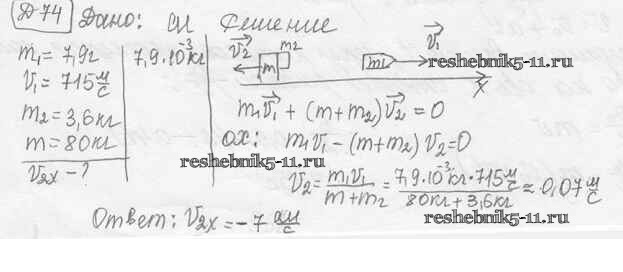 Д 74 Дано: СИ Решение
m₁ = 7,9г 7,9·10⁻³кг
v₁ = 715 м/с
m₂ = 3,6кг
m = 80кг
v₂ₓ - ?
v⃗₂ m m₂ m₁ v⃗₁
reshebnik5-11.ru
X
m₁v⃗₁ + (m + m₂)v⃗₂ = 0
ОХ: m₁v₁ - (m + m₂) v₂ = 0
reshebnik5-11.ru
v₂ = m₁v₁/(m + m₂) = 7,9·10⁻³кг·715 м/с/(80кг + 3,6кг) ≈ 0,07 м/с
reshebnik5-11.ru
Ответ: v₂ₓ = - 7 см/с